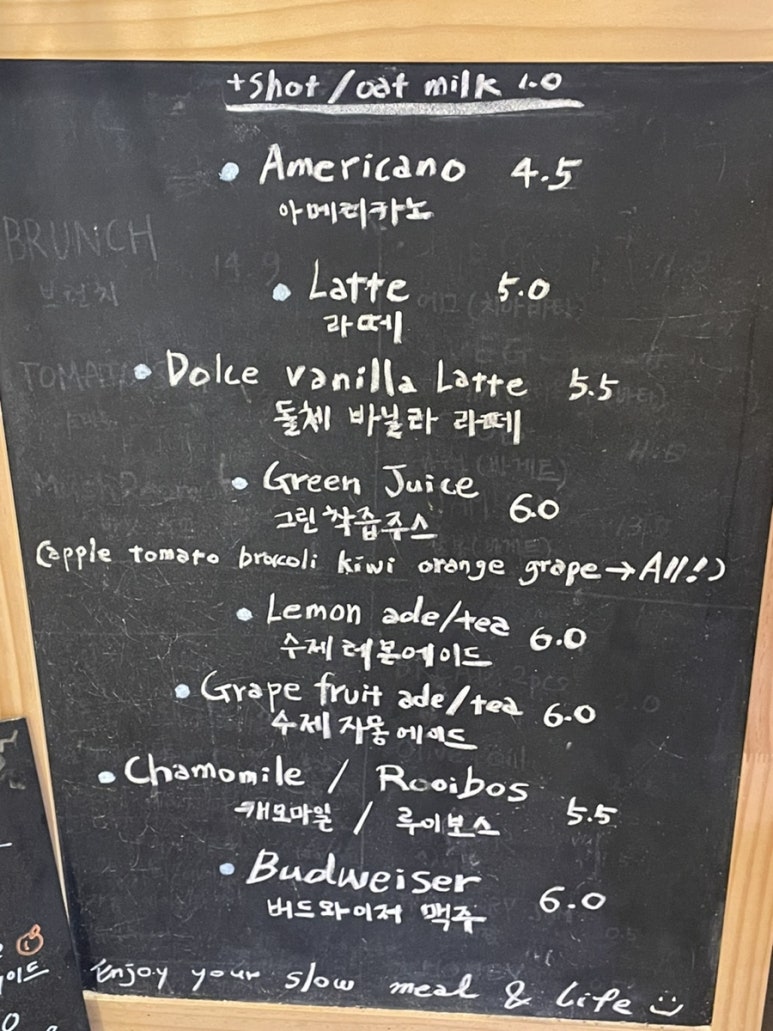 +shot/oat milk 1.0
• Americano 4.5
아메리카노
• Latte 5.0
라떼
• Dolce vanilla Latte 5.5
돌체 바닐라 라떼
• Green Juice 6.0
그린 착즙주스
(apple tomato broccoli kiwi orange grape→All!)
• Lemon ade/tea 6.0
수제 레몬에이드
• Grape fruit ade/tea 6.0
수제 자몽에이드
• Chamomile / Rooibos 5.5
캐모마일 / 루이보스
• Budweiser 6.0
버드와이저 맥주
Enjoy your slow meal & Life
BRUNCH 14.9
브런치